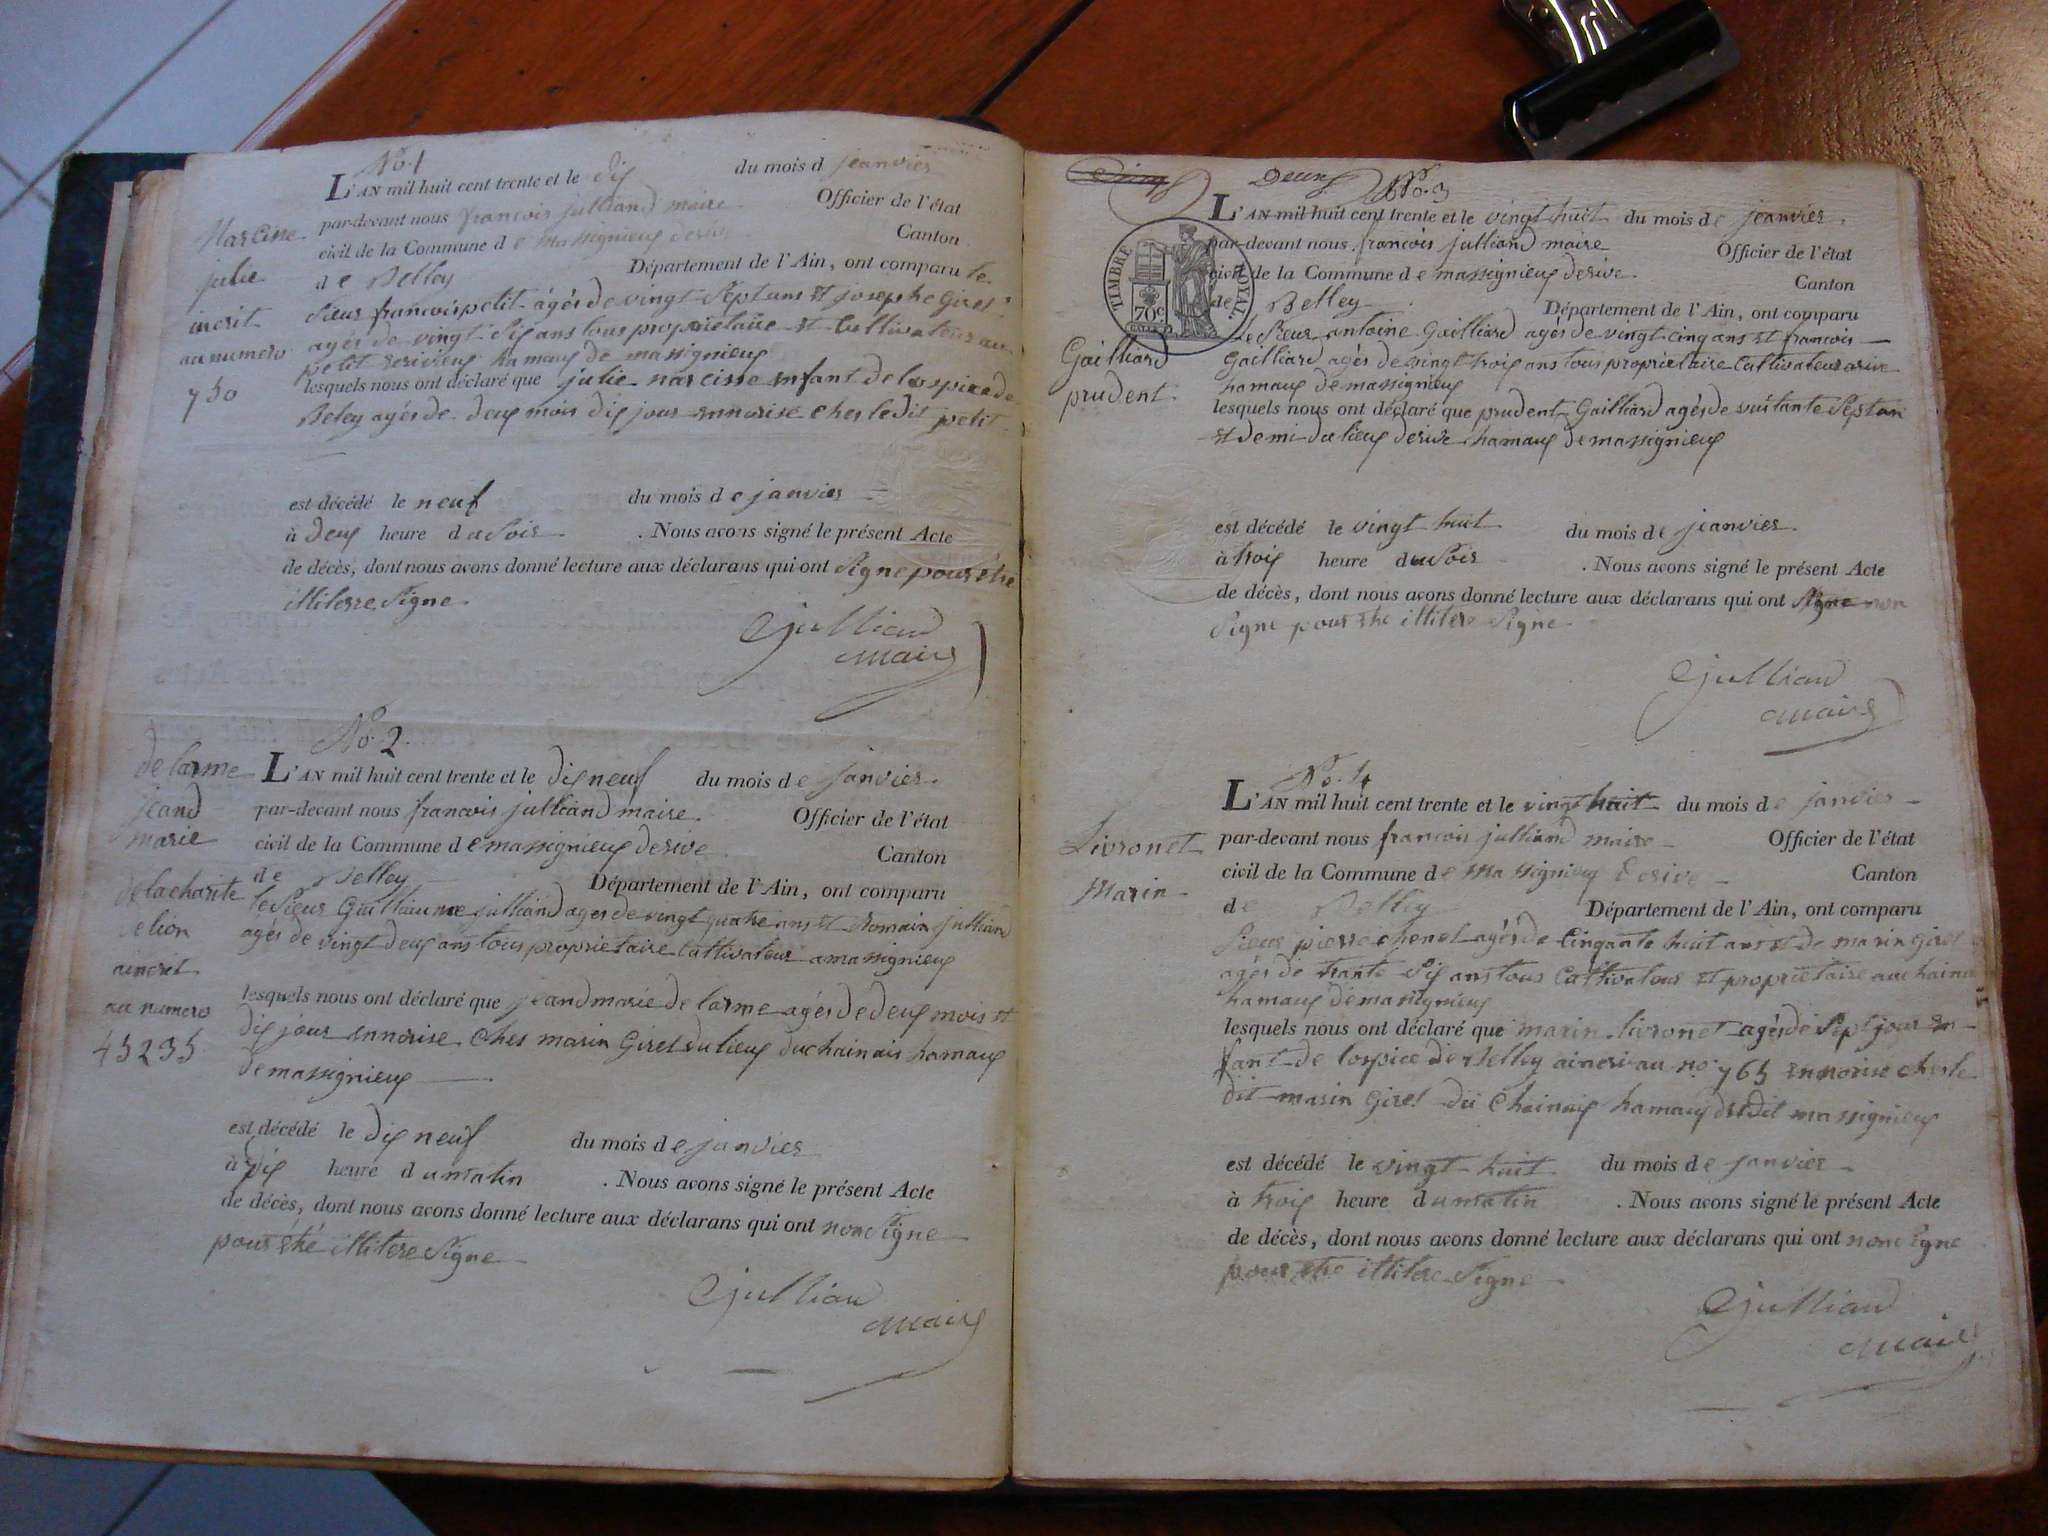 No. 1
L'AN mil huit cent trente et le dix du mois d jeanvier
par-devant nous francois julliand maire Officier de l'état
civil de la Commune de massignieux derive Canton
de Belley Département de l'Ain, ont comparu le
Narcisse
julie
inscrit
au numero
750
sieur francois petit agés de vingt sept ans et josephe Giret
agés de vingt six ans tous proprietaire et cultivateur au
petit hamaux de massignieux
lesquels nous ont déclaré que julie narcisse enfant de lospice de
Beley agés de deux mois dix jour ennorise ches ledit petit
est décédé le neuf du mois de janvier
à deux heure du soir . Nous avons signé le présent Acte
de décès, dont nous avons donné lecture aux déclarans qui ont signe pour etre
illiterre signe
julliand
maire
No. 2.
L'AN mil huit cent trente et le dix neuf du mois de janvier
par-devant nous francois julliand maire Officier de l'état
civil de la Commune de massignieux derive Canton
de Belley Département de l'Ain, ont comparu
de larme
jeand
marie
delacharite
elion
aincrit
au numero
45235
le sieur Guillaume julliand ages de vingt quatre ans et Romain julliand
agés de vingt deux ans tous proprietaire cultivateur a massignieux
lesquels nous ont déclaré que jeandmarie de larme agés de deux mois et
dix jour ennorise ches marin Giret du lieux duchainais hamaux
de massignieux
est décédé le dix neuf du mois de janvier
à dix heure du matin . Nous avons signé le présent Acte
de décès, dont nous avons donné lecture aux déclarans qui ont non signe
pour etre illitere signe
julliand
maire
Deux No. 3
L'AN mil huit cent trente et le vingt huit du mois de jeanvier
par-devant nous francois julliand maire Officier de l'état
civil de la Commune de massignieux derive Canton
de Belley Département de l'Ain, ont comparu
TIMBRE ROYAL
70c
Gailliard
prudent
le sieur antoine Gailliard agés de vingt cinq ans et francois
Gailliard agés de vingt trois ans tous proprietaire cultivateur arive
hamaux de massignieux
lesquels nous ont déclaré que prudent Gailliard agés de soisante sept an
et demi du lieux derive hamaux de massignieux
est décédé le vingt huit du mois de jeanvier
à trois heure du soir . Nous avons signé le présent Acte
de décès, dont nous avons donné lecture aux déclarans qui ont signe non
signe pour etre illitere signe
julliand
maire
No. 4
L'AN mil huit cent trente et le vingt huit du mois de janvier
par-devant nous francois julliand maire Officier de l'état
civil de la Commune de massignieux derive Canton
de Belley Département de l'Ain, ont comparu
Livronet
Marin
sieur pierre chenet agés de cinqante huit ans et de marin Giret
agés de trante six ans tous cultivateur et proprietaire au chainais
hamaux de massignieux
lesquels nous ont déclaré que marin livronet agés de sept jour en
fant de lospice de Belley aincri au no. 765 ennorise ches le
dit marin Giret du chainais hamaux dudit massignieux
est décédé le vingt huit du mois de janvier
à trois heure du matin . Nous avons signé le présent Acte
de décès, dont nous avons donné lecture aux déclarans qui ont non signe
pour etre illitere signe
julliand
maire